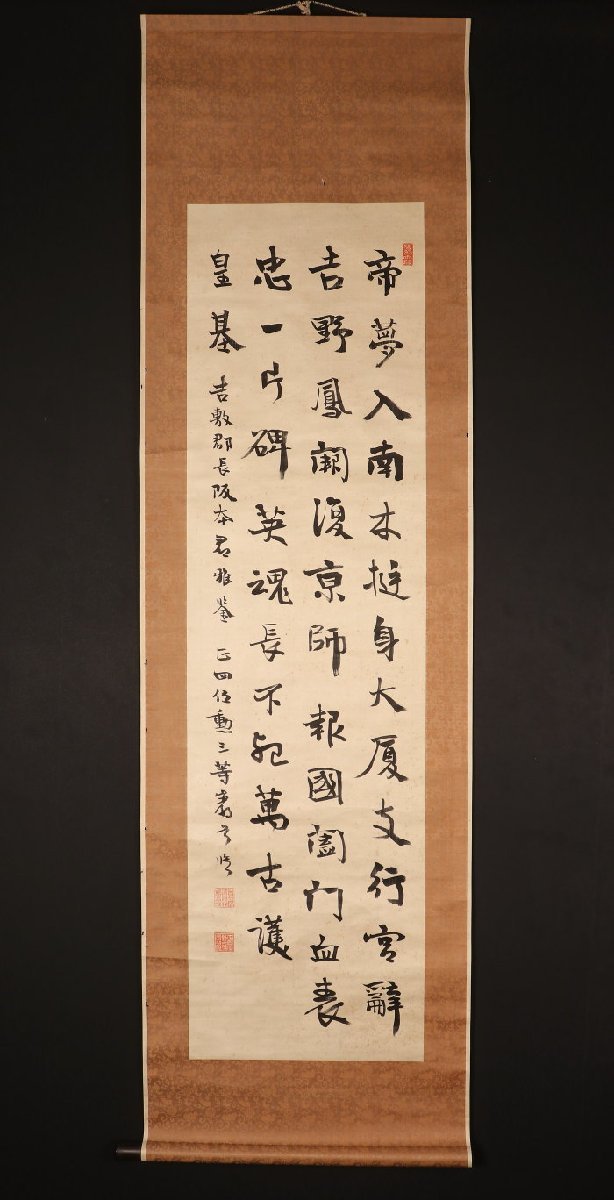 帝夢入南木挺身大厦支行宮辭
吉野鳳闕復京師報國闔門血表
忠一片碑英魂長不死萬古護
皇基 吉敷郡長阪本君雅鑒 正四位勳三等